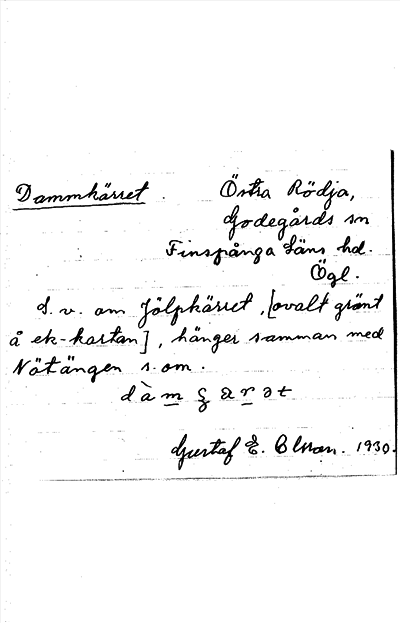 Dammkärret
Östra Rödja,
Godegårds sn
Finspånga Läns hd.
Ögl.
d. v. om Jälpkärret, [ovalt grönt
å ek-kartan], hänger samman med
Nötängen s. om.
Gustaf E. 1930.